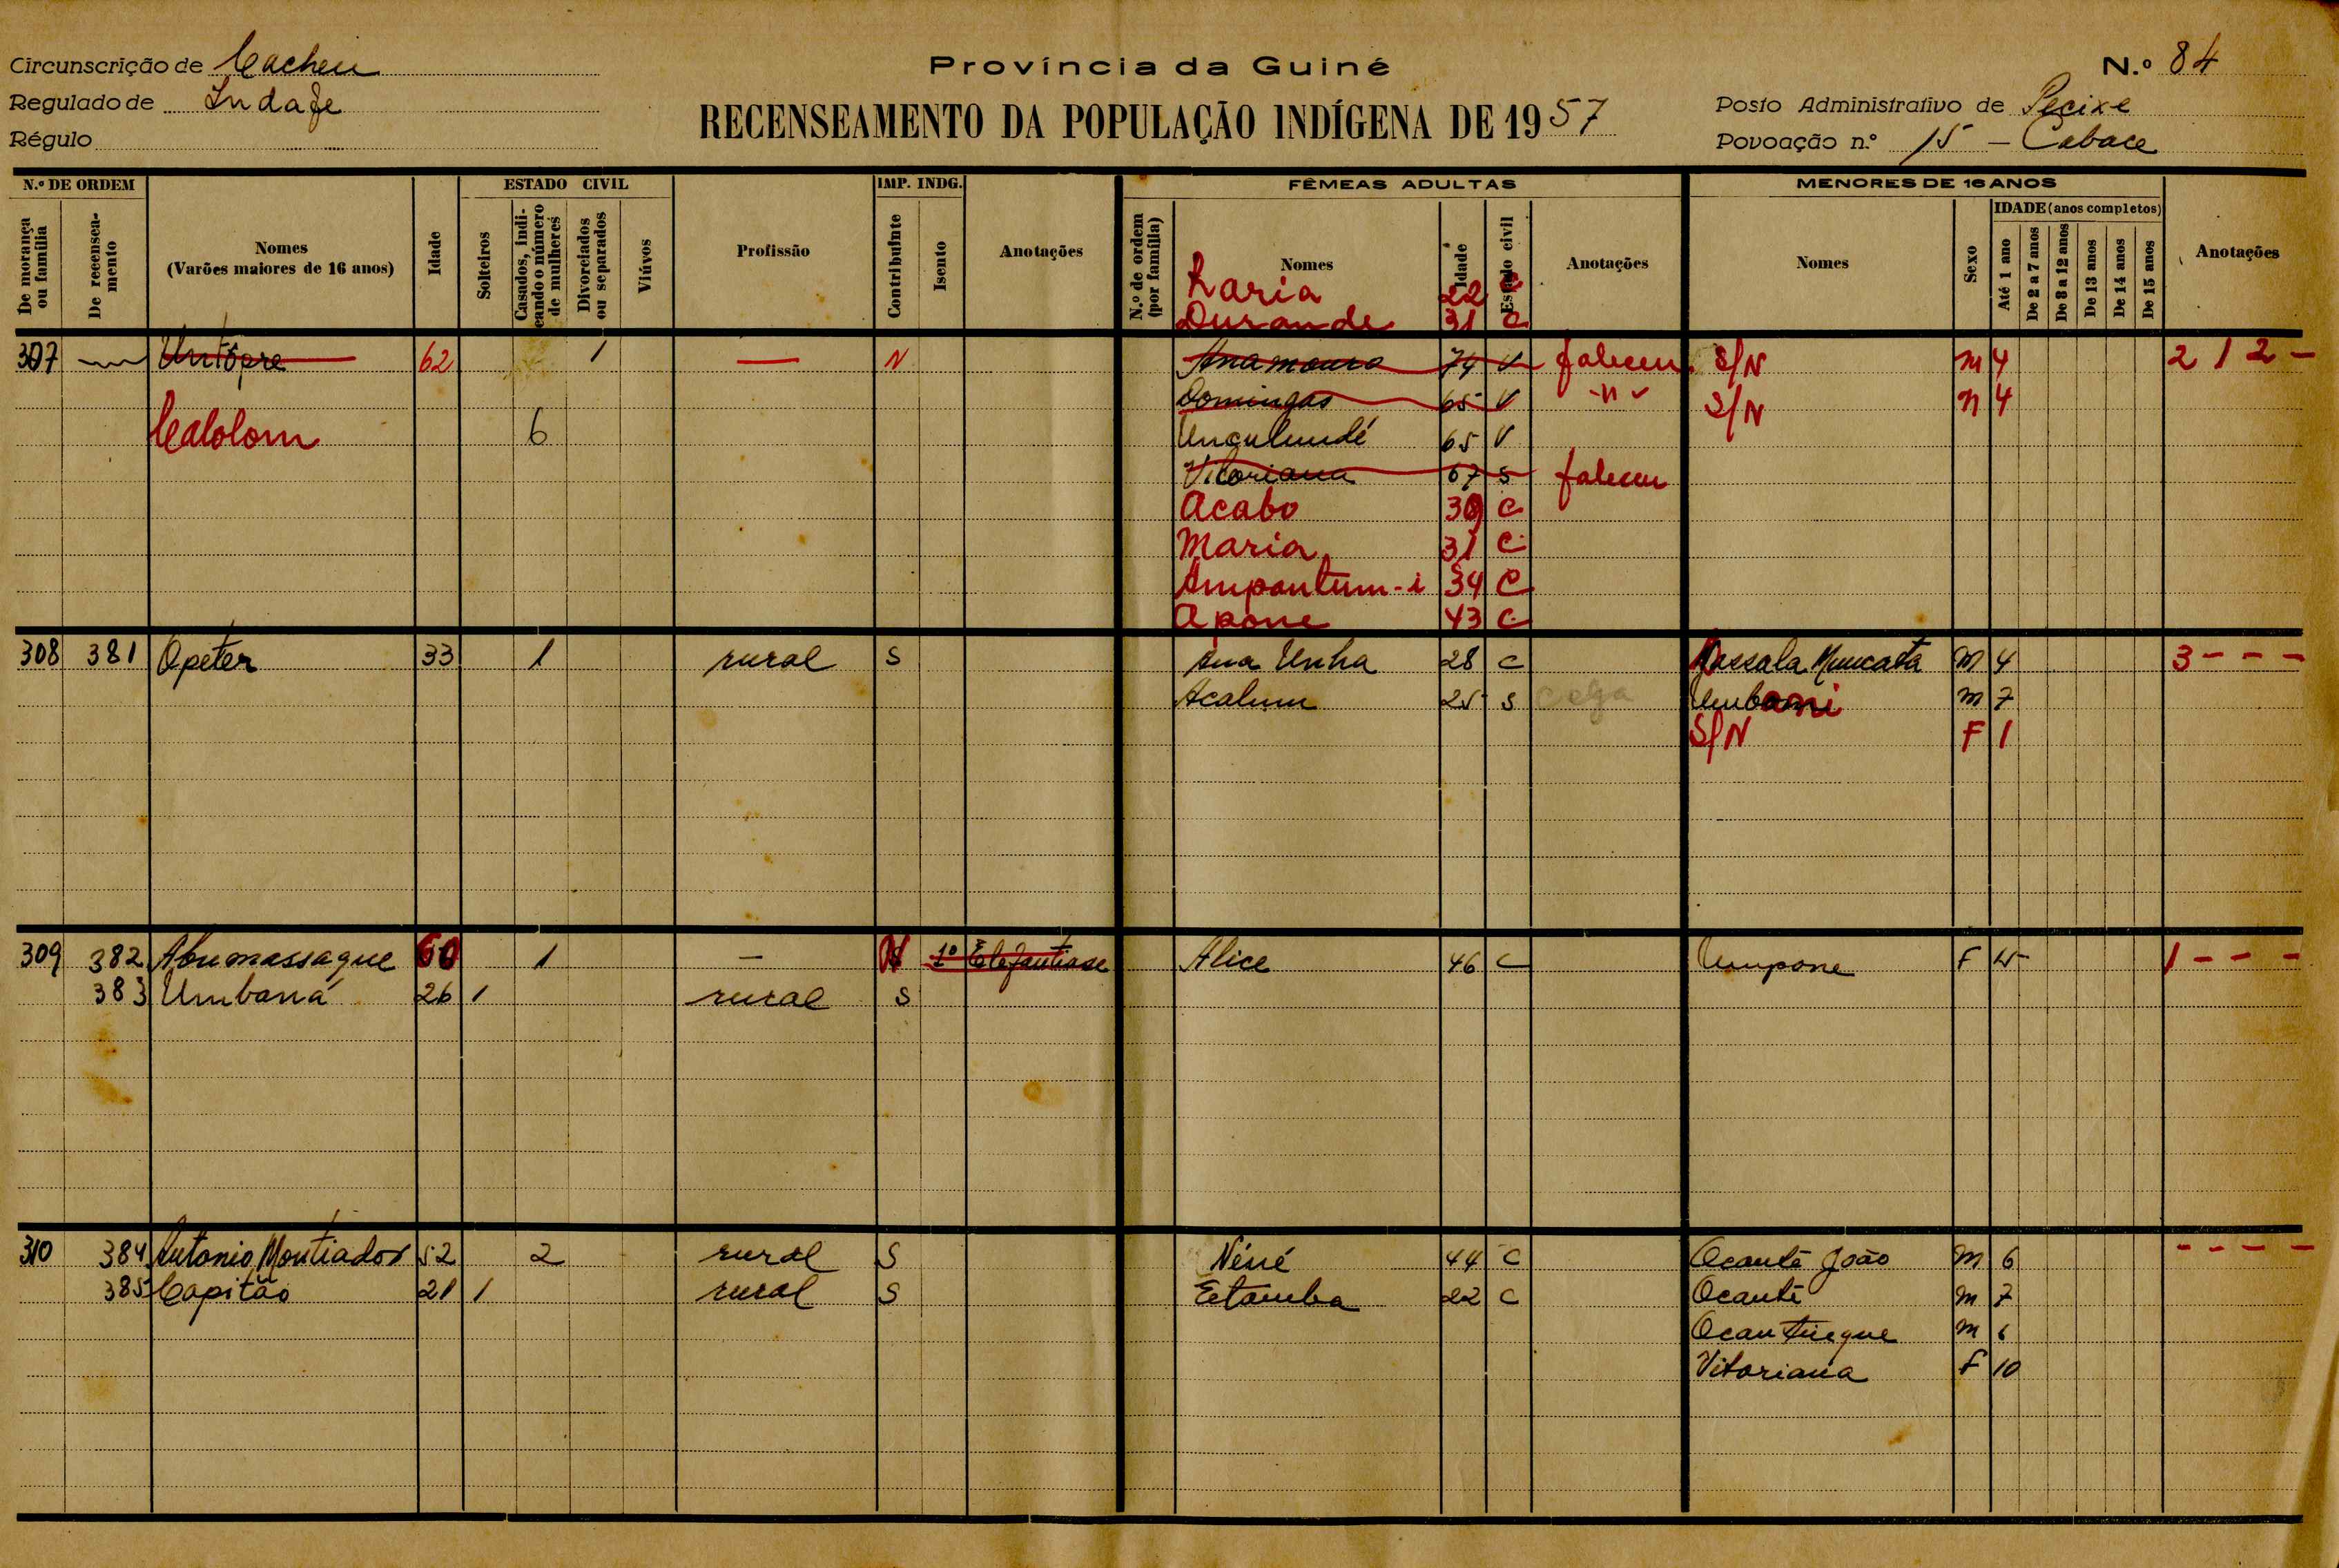 Circunscrição de Cacheu
Província da Guiné
N.º 84
Regulado de Indafe
RECENSEAMENTO DA POPULAÇÃO INDÍGENA DE 1957
Posto Administrativo de Pecixe
Régulo
Povoação n.º 15 - Cabace
N.º DE ORDEM
De morança ou família
De recenseamento
Nomes
(Varões maiores de 16 anos)
Idade
ESTADO CIVIL
Solteiros
Casados, indicando o número de mulheres
Divorciados ou separados
Viúvos
Profissão
IMP. INDG.
Contribuinte
Isento
Anotações
FÊMEAS ADULTAS
N.º de ordem (por família)
Nomes
Idade
Estado civil
Anotações
MENORES DE 16 ANOS
Nomes
Sexo
IDADE (anos completos)
Até 1 ano
De 2 a 7 anos
De 8 a 12 anos
De 13 anos
De 14 anos
De 15 anos
Anotações
Maria 22 C
Durande 31 C
307 Untôpre 62 1 — N Anamoura 74 V faleceu S/N M 4 2 1 2 -
Domingas 65 V -"- S/N M 4
Calolom 6 Unculundé 65 V
Vitoriana 67 S faleceu
Acabo 39 C
Maria 31 C
Ampantum-i 34 C
Apone 43 C
308 381 Opeter 33 1 rural S Ana Unha 28 C Massala Muncata M 4 3 - - -
Acalum 25 S cega Umbomi M 7
S/N F 1
309 382 Abumassaque 60 1 — N 1º Elefantiase Alice 46 C Umpone F 15 1 - - -
383 Umbaná 26 1 rural S
310 384 Antonio Montiador 52 2 rural S Néné 44 C Ocanté João M 6 - - - -
385 Capitão 21 1 rural S Etamba 22 C Ocanté M 7
Ocantuegue M 6
Vitoriana F 10